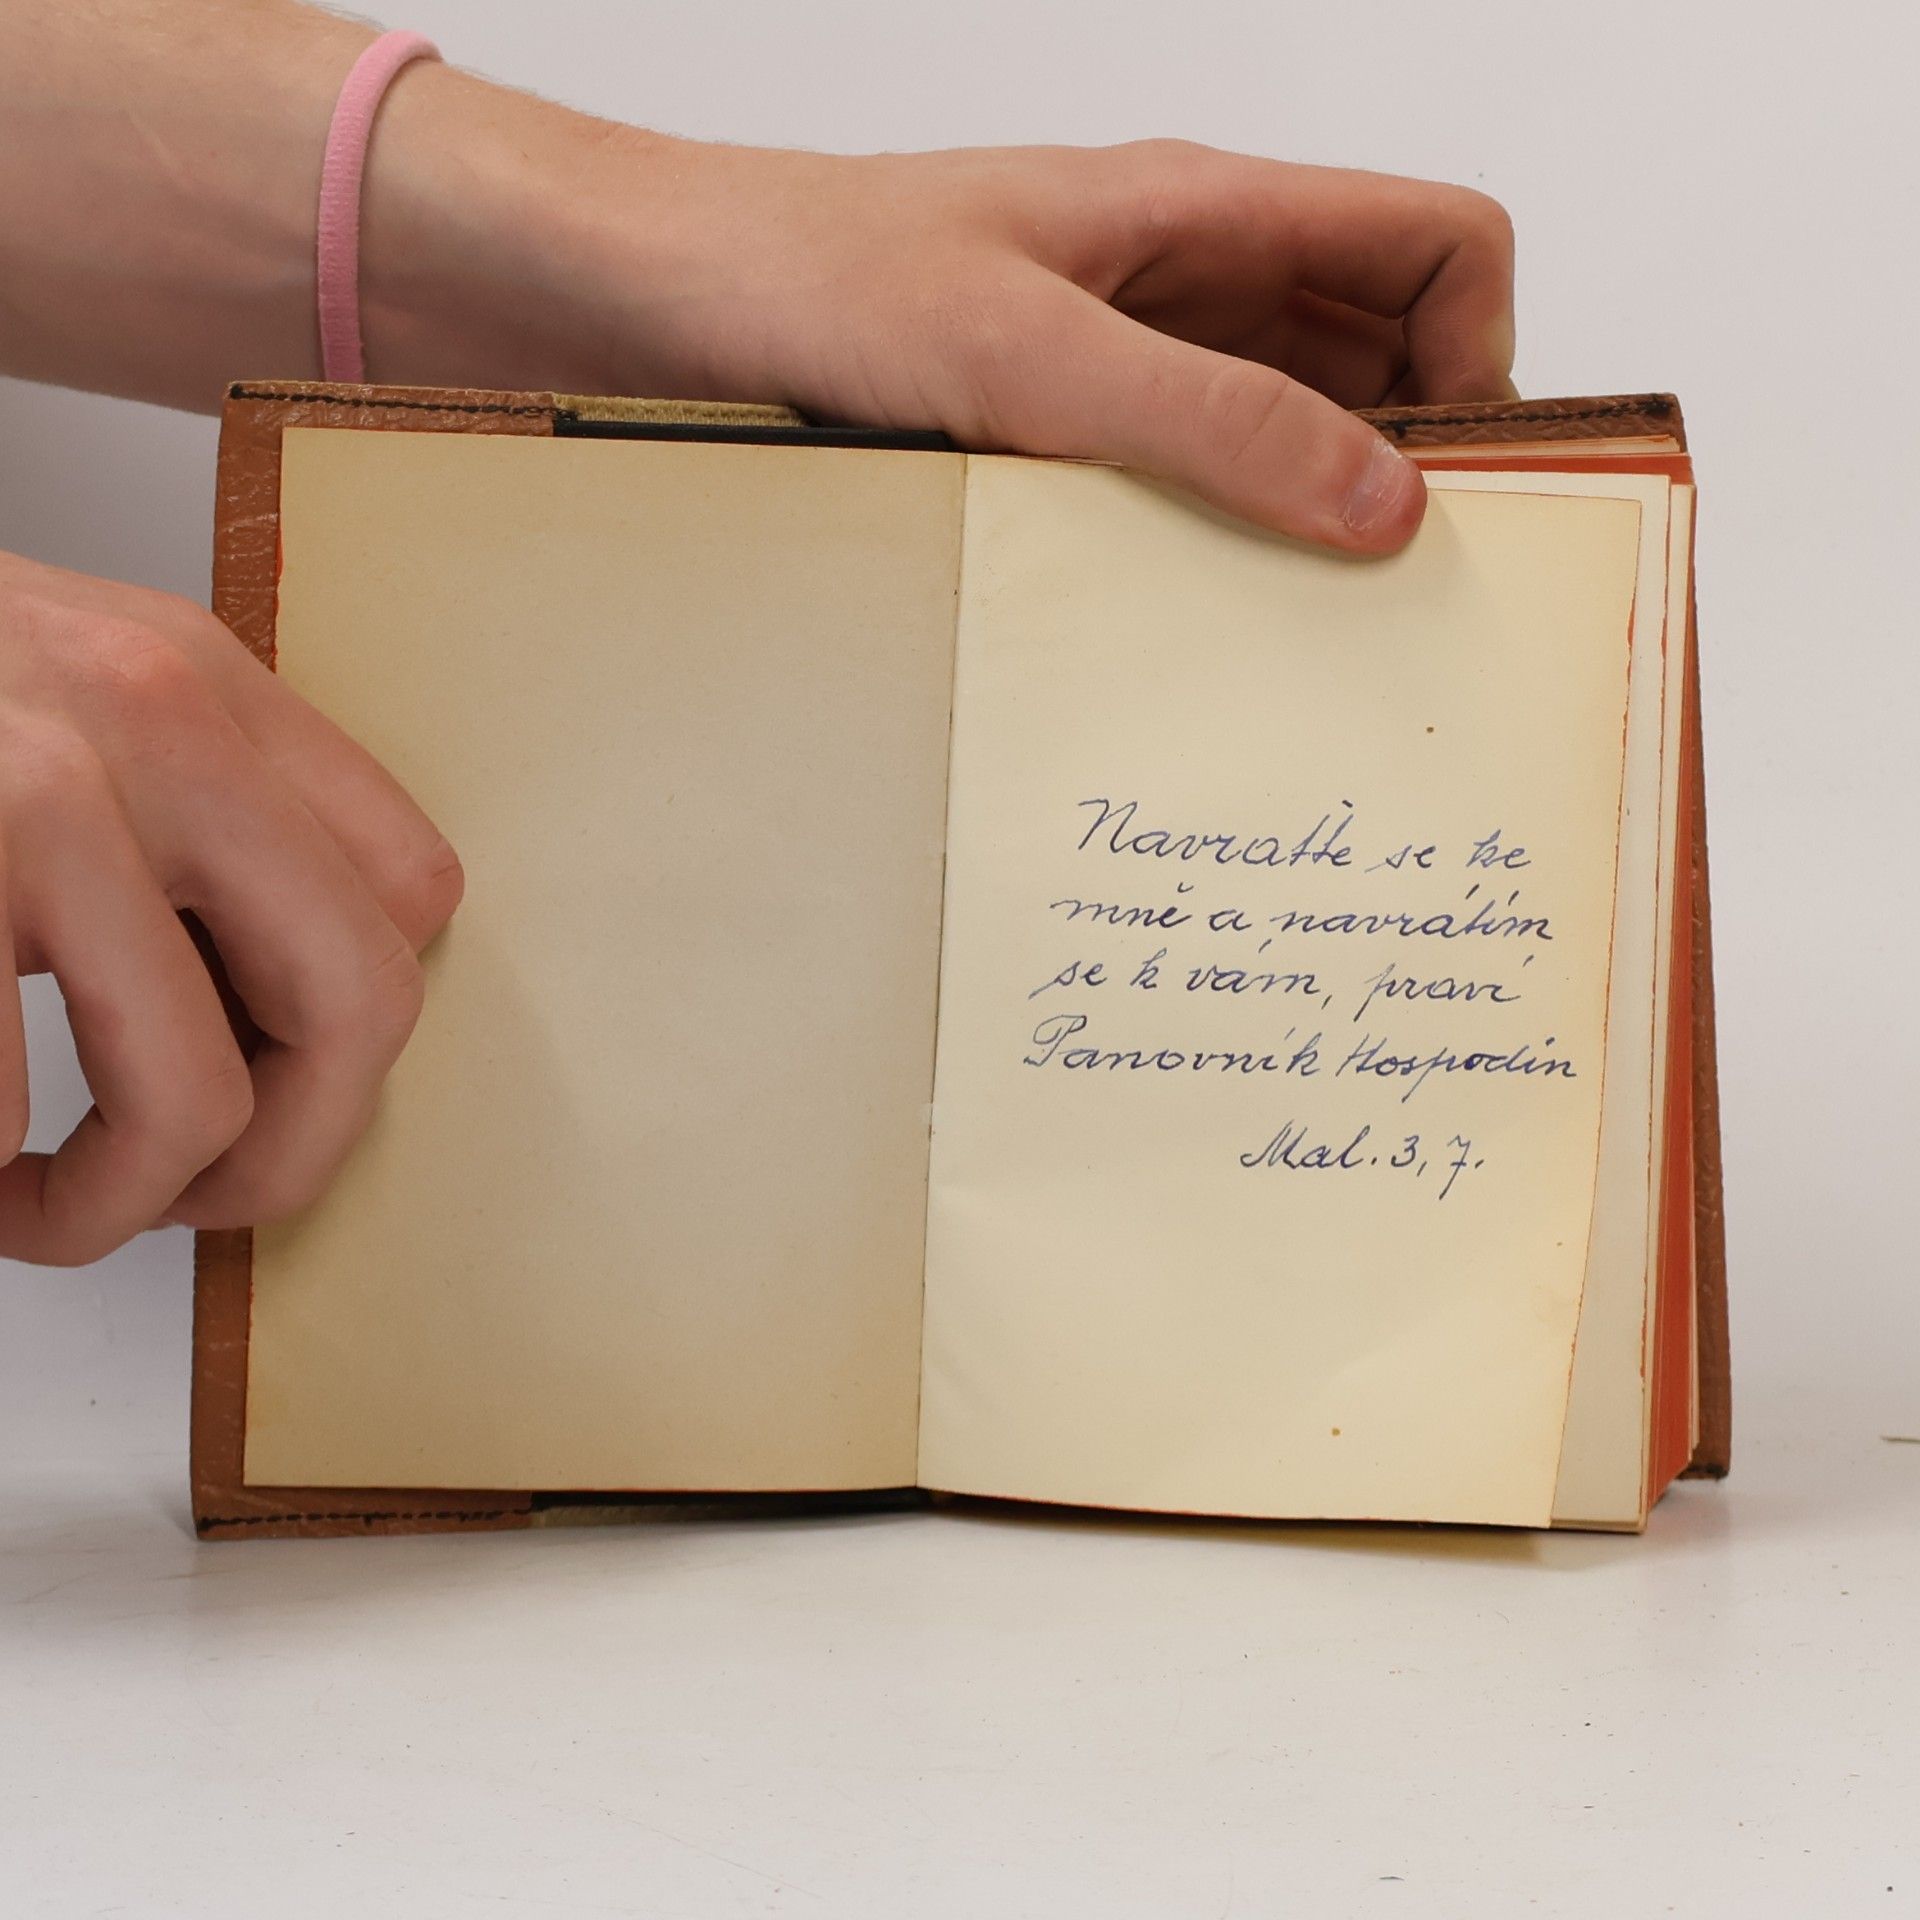 Navraťte se ke
mně a navrátím
se k vám, praví
Panovník Hospodin
Mal. 3, 7.